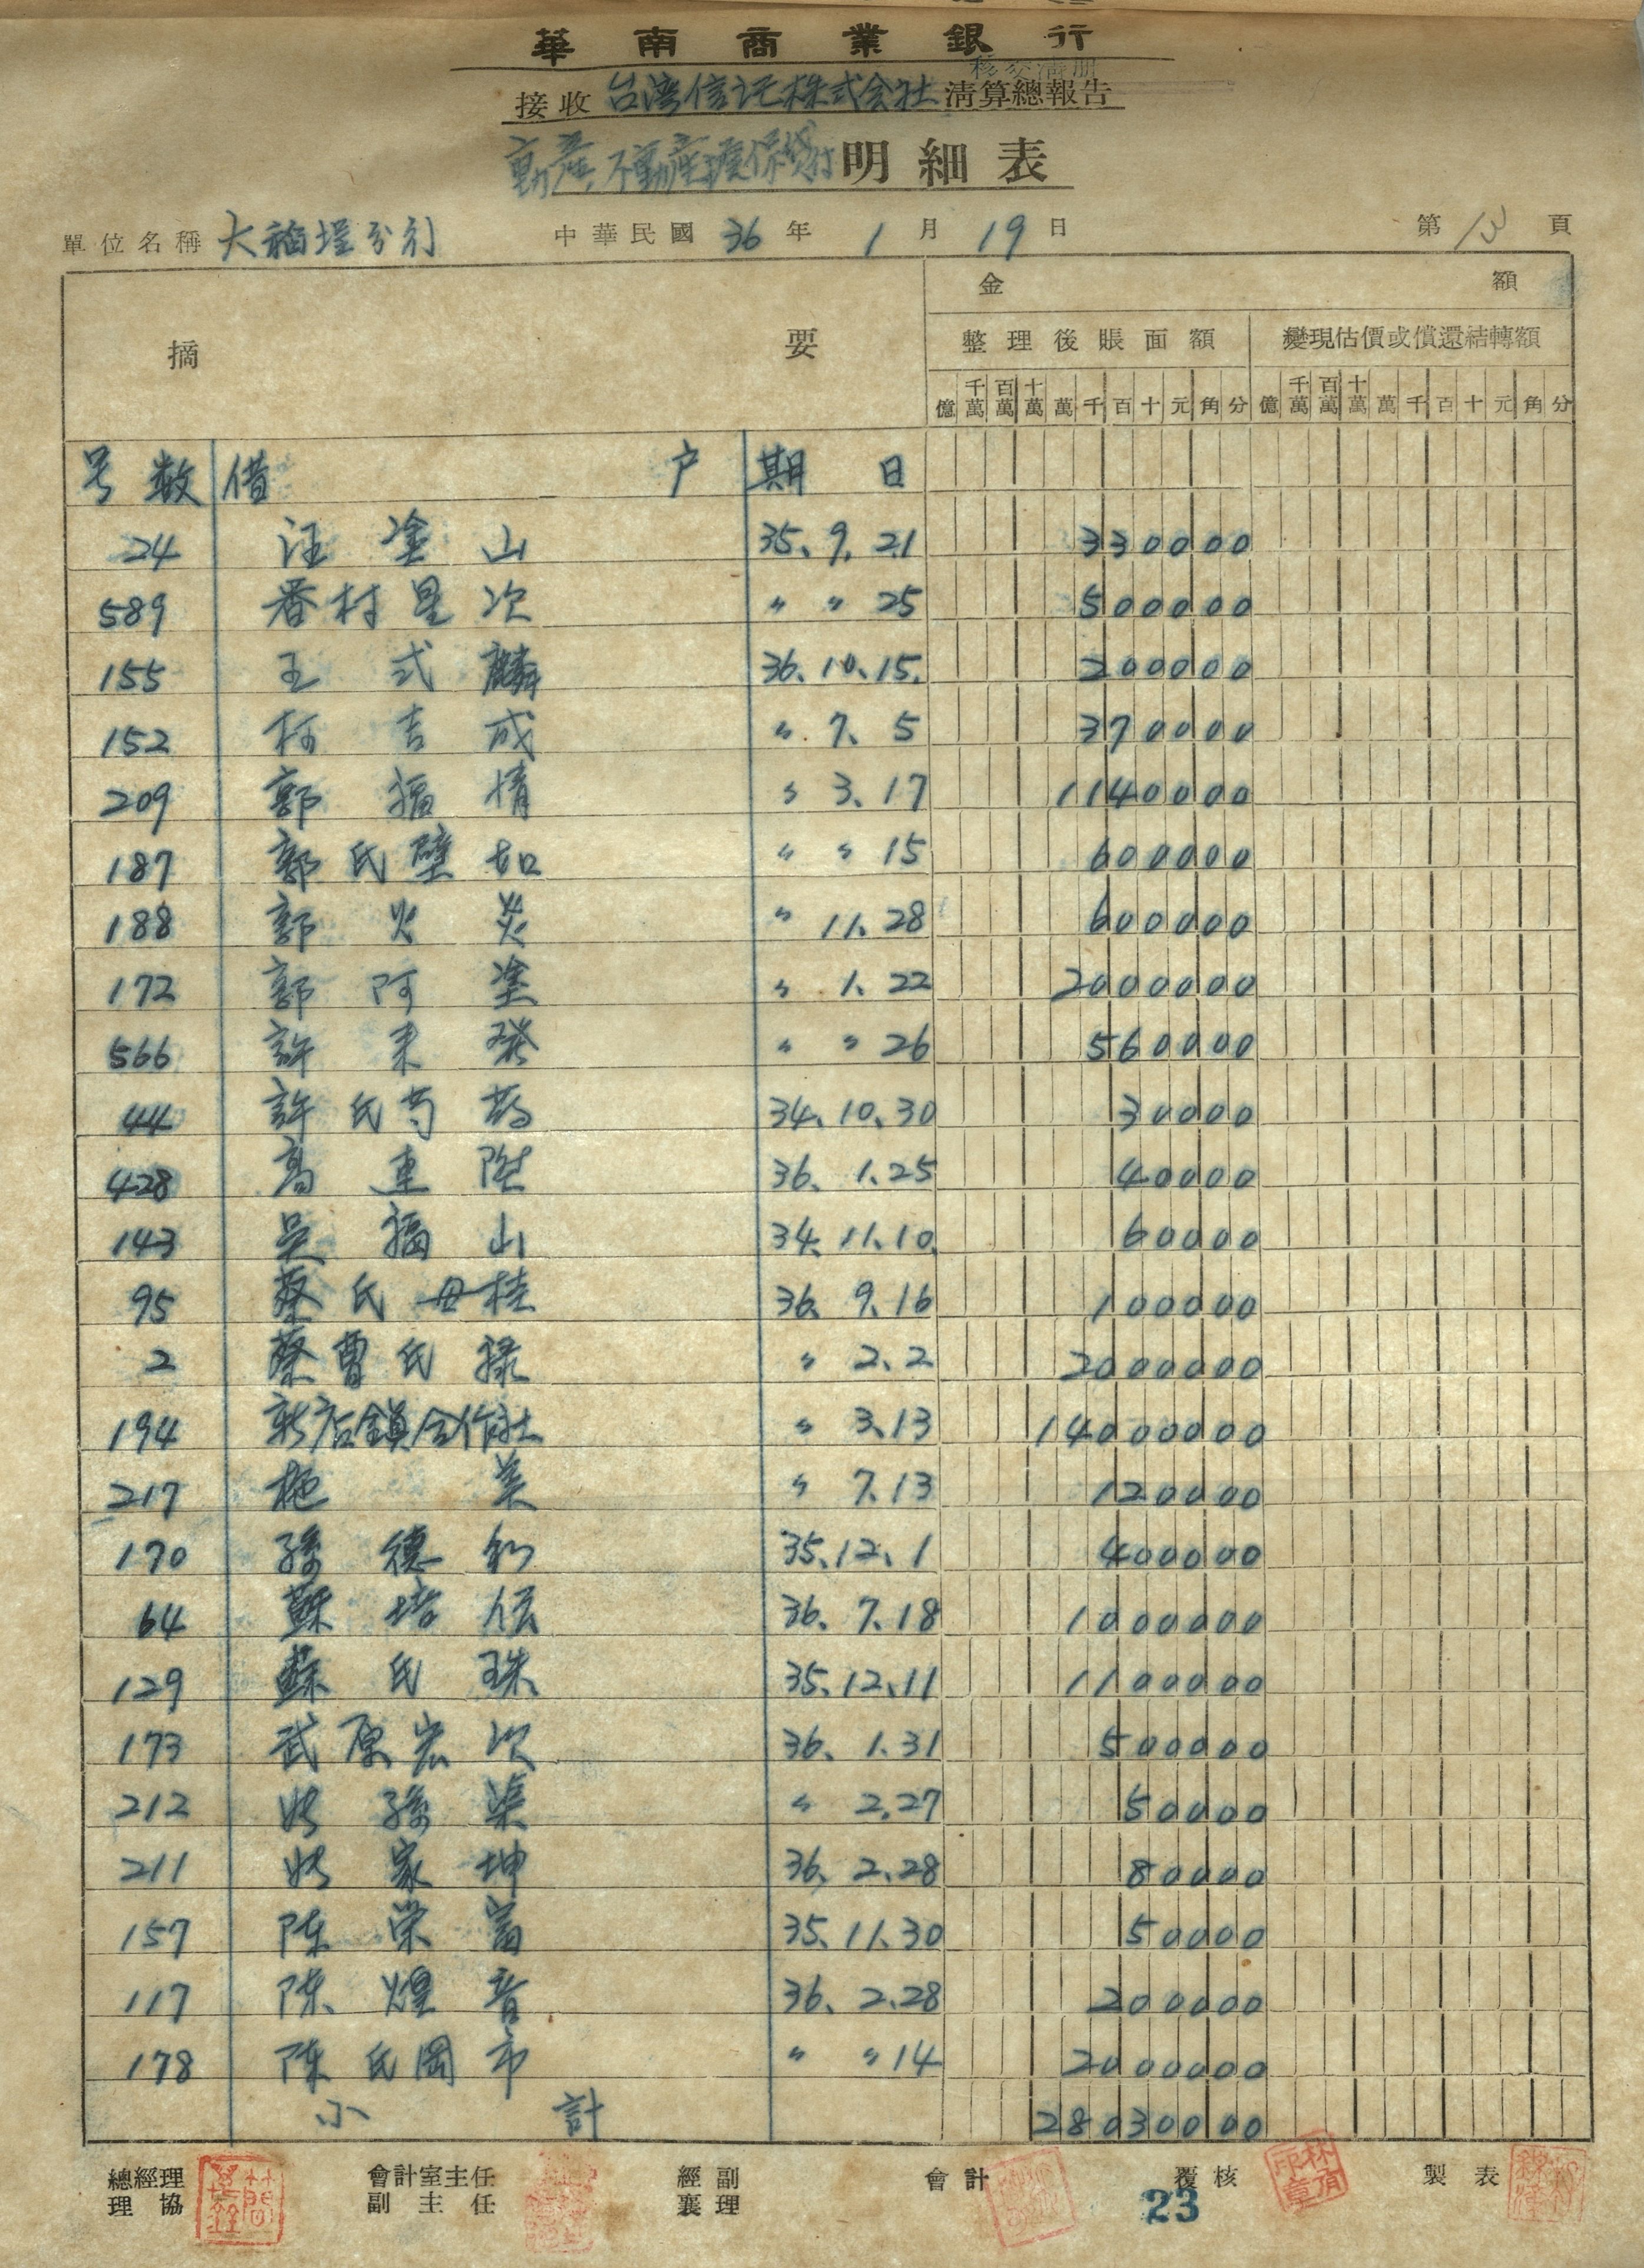 華南商業銀行
移交清册
接收 台湾信託株式会社 清算總報告
動產、不動產擔保貸付 明細表
單位名稱 大稲埕分行 中華民國 36 年 1 月 19 日 第 13 頁
摘 要 金 額
整理後賬面額 變現估價或償還結轉額
億 千萬 百萬 十萬 萬 千 百 十 元 角 分 億 千萬 百萬 十萬 萬 千 百 十 元 角 分
号数 借 户 期日
24 汪塗山 35、9、21 330000
589 春村星次 〃 〃 25 500000
155 王式麟 36、10、15、 200000
152 柯吉成 〃 7、5 370000
209 郭福情 〃 3、17 1140000
187 郭氏璧如 〃 〃 15 600000
188 郭火炎 〃 11、28 600000
172 郭阿塗 〃 1、22 2000000
566 許来發 〃 〃 26 560000
44 許氏芍药 34、10、30 30000
428 高連陞 36、1、25 40000
143 吳福山 34、11、10、 60000
95 蔡氏毋桂 36、9、16 100000
2 蔡曹氏祿 〃 2、2 2000000
194 新店鎮合作社 〃 3、13 14000000
217 施美 〃 7、13 120000
170 孫德和 35、12、1 400000
64 蘇培伝 36、7、18 1000000
129 蘇氏珠 35、12、11 1100000
173 武原宏次 36、1、31 500000
212 姚孫渠 〃 2、27 50000
211 姚家坤 36、2、28 80000
157 陈栄富 35、11、30 50000
117 陈煌音 36、2、28 200000
178 陈氏罔市 〃 〃 14 2000000
小計 28030000
總經理 會計室主任 經副 會計 覆核 製表
理協 副主任 襄理
23